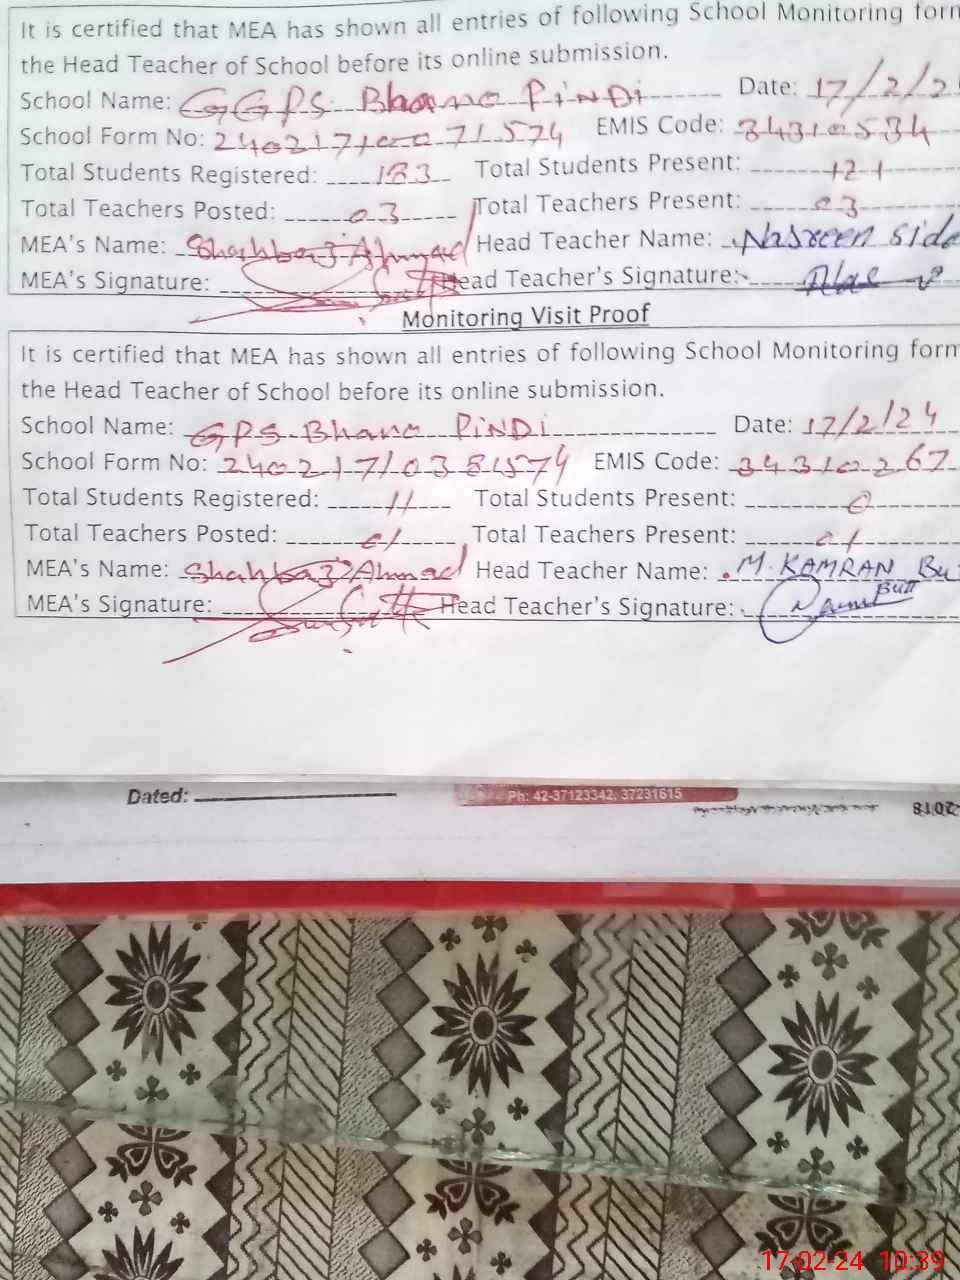 It is certified that MEA has shown all entries of following School Monitoring form
the Head Teacher of School before its online submission.
School Name: GGPS Bhano PiNDi Date: 17/2/2
School Form No: 24021710071574 EMIS Code: 34310534
Total Students Registered: 183 Total Students Present: 121
Total Teachers Posted: 03 Total Teachers Present: 03
MEA's Name: Shahbaz Ahmad Head Teacher Name: Nasreen
MEA's Signature: Head Teacher's Signature:
Monitoring Visit Proof
It is certified that MEA has shown all entries of following School Monitoring form
the Head Teacher of School before its online submission.
School Name: GPS Bhano PiNDi Date: 17/2/24
School Form No: 24021710381574 EMIS Code: 34310267
Total Students Registered: 11 Total Students Present: 0
Total Teachers Posted: 01 Total Teachers Present: 01
MEA's Name: Shahbaz Ahmad Head Teacher Name: M. KAMRAN
MEA's Signature: Head Teacher's Signature: Butt
Dated: Ph: 42-37123342, 37231615
2018
17-02-24 10:39